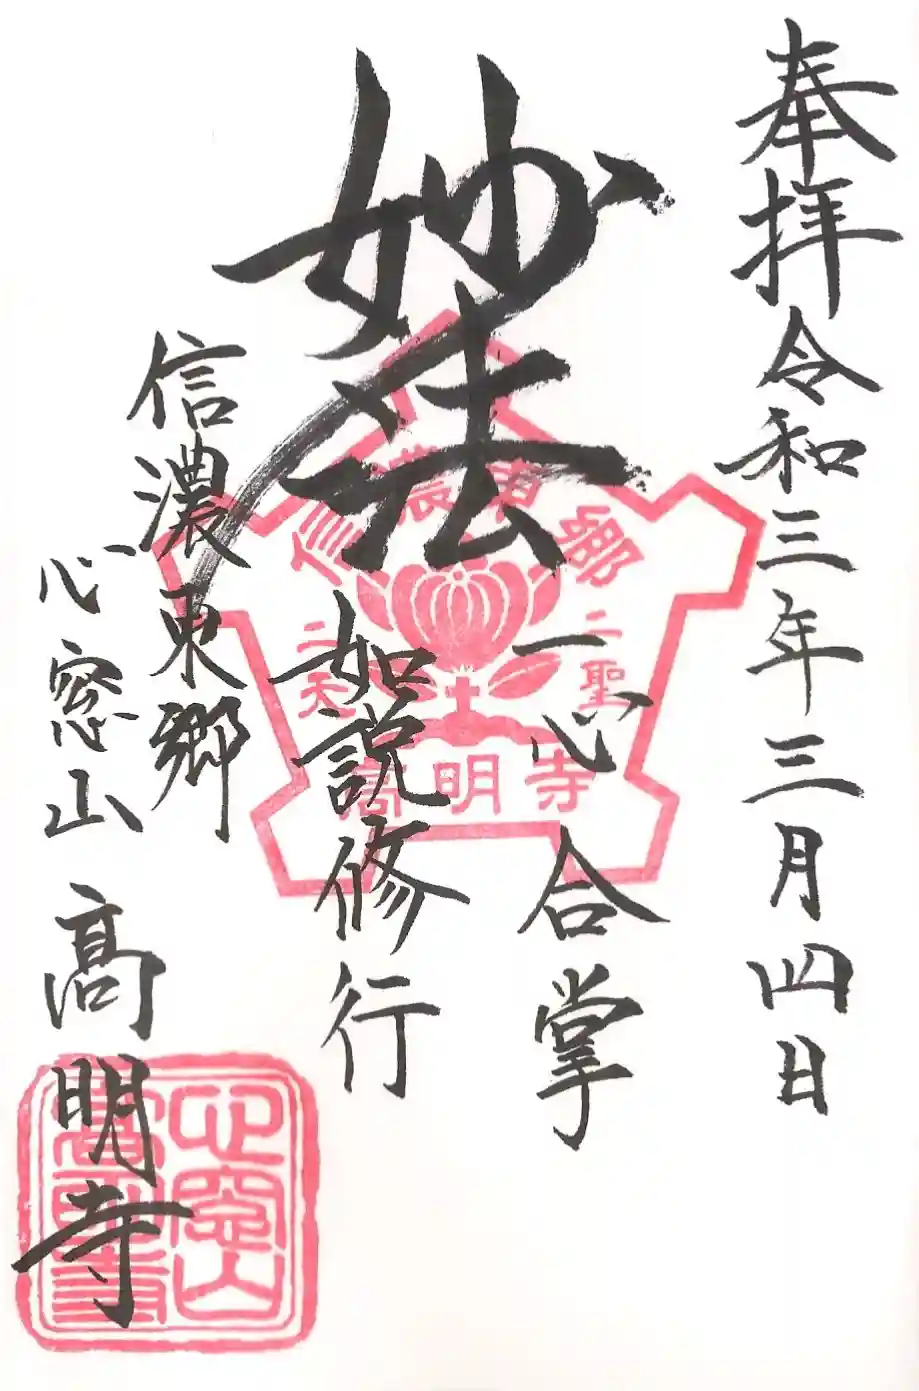 奉拝令和三年三月四日
妙法
一心合掌
如説修行
信濃東郷
心窓山
髙明寺
信濃東郷
二聖
二天
髙明寺
心窓山
髙明寺